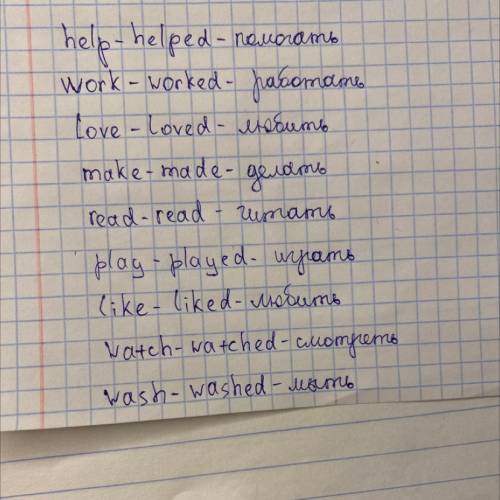 help - helped - помогать
work - worked - работать
love - loved - любить
make - made - делать
read - read - читать
play - played - играть
like - liked - любить
watch - watched - смотреть
wash - washed - мыть